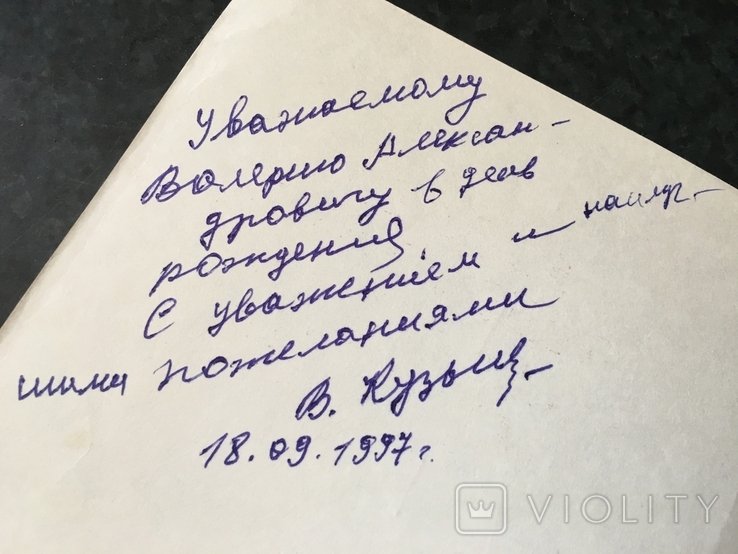 Уважаемому
Валерию Алексан-
дровичу в день
рождения.
С уважением и наилуч-
шими пожеланиями
В.
18.09.1997г.
VIOLITY